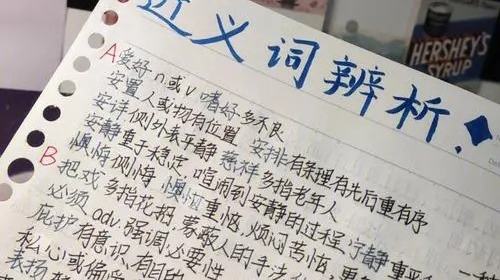 近义词辨析
HERSHEY'S
SYRUP
A爱好 n.或v 嗜好 多不良
安置 人或物有位置 安排有条理有先后重有序
安详 侧外表平静 慈祥多指老年人
安静重于稳定 喧闹到安静的过程 宁静重
B 懊悔 侧悔 懊恼重恼 烦闷苦恼
把戏 多指花招 蒙蔽人的手
必须 adv. 强调必要性
庇护 有意识 有目的
私心 或偏
表扬